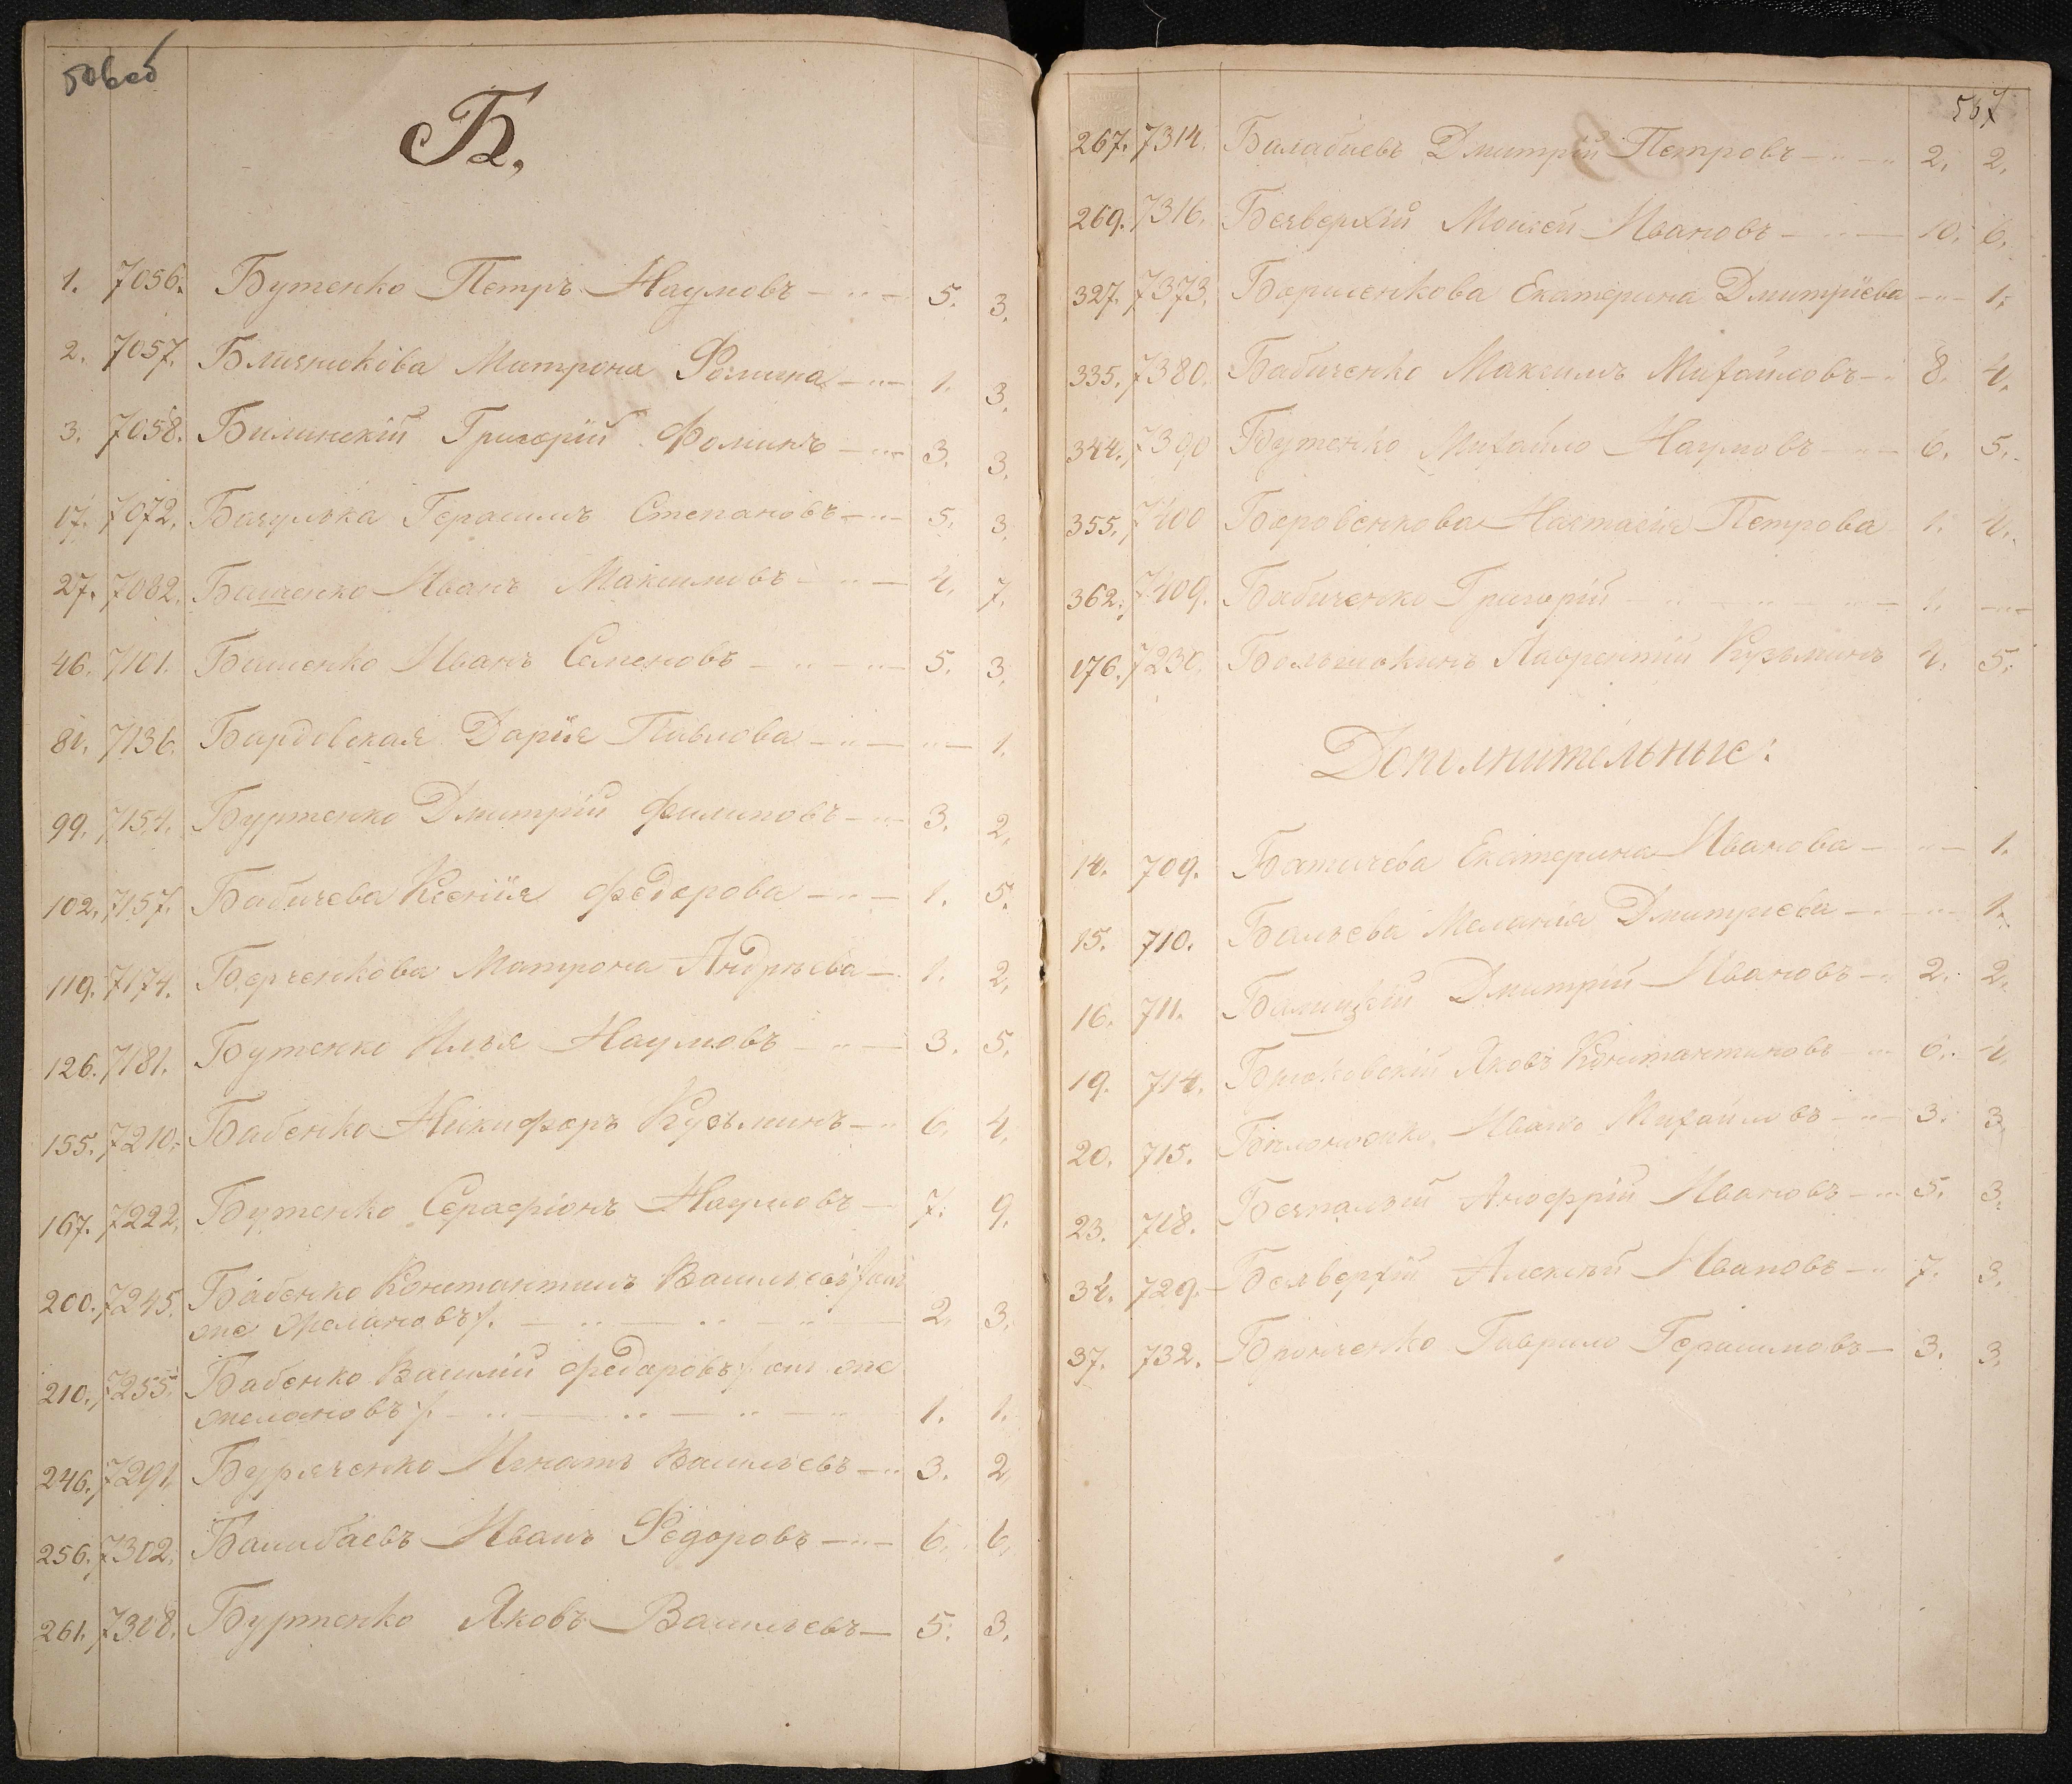 506об
Б.
1. 7056. Бутенко Петръ Наумовъ 5. 3.
2. 7057. Матрона Фомина 1. 3.
3. 7058. Билинскій Григорій Фоминъ 3. 3.
17. 7072. Герасимъ Степановъ 5. 3.
27. 7082. Иванъ Максимовъ 4. 7.
46. 7101. Иванъ Семеновъ 5. 3.
81. 7136. Бардовская Дарія Павлова 1.
99. 7154. Буртенко Дмитрій Филиповъ 3. 2.
102. 7157. Бабичева Ксенія Федорова 1. 5.
119. 7174. Матрона Андрѣева 1. 2.
126. 7181. Бутенко Илья Наумовъ 3. 5.
155. 7210. Бабенко Никифоръ Кузьминъ 6. 4.
167. 7222. Бутенко Серафіонъ Наумовъ 7. 9.
200. 7245. Бабенко Константинъ Васильевъ /онъ
же Желановъ/. 2. 3.
210. 7255. Бабенко Василій Федоровъ /онъ же
Желановъ/. 1. 1.
246. 7291. Буряченко Игнатъ Васильевъ 3. 2.
256. 7302. Иванъ Федоровъ 6. 6.
261. 7308. Буртенко Яковъ Васильевъ 5. 3.
507
267. 7314. Балабаевъ Дмитрій Петровъ 2. 2.
269. 7316. Безверхій Моисей Ивановъ 10. 6.
327. 7373. Екатерина Дмитріева 1.
335. 7380. Бабиченко Максимъ Михайловъ 8. 4.
344. 7390 Бутенко Михайло Наумовъ 6. 5.
355. 7400 Боровенкова Настасія Петрова 1. 4.
362. 7409. Бабиченко Григорій 1.
176. 7230. Лаврентій Кузьминъ 4. 5.
Дополнительные:
14. 709. Екатерина Иванова 1.
15. 710. Меланія Дмитріева 1.
16. 711. Дмитрій Ивановъ 2. 2.
19. 714. Яковъ Константиновъ 6. 4.
20. 715. Иванъ Михайловъ 3. 3.
23. 718. Безпалый Анофрій Ивановъ 5. 3.
34. 729. Безверхій Алексѣй Ивановъ 7. 3.
37. 732. Гаврило Герасимовъ 3. 3.